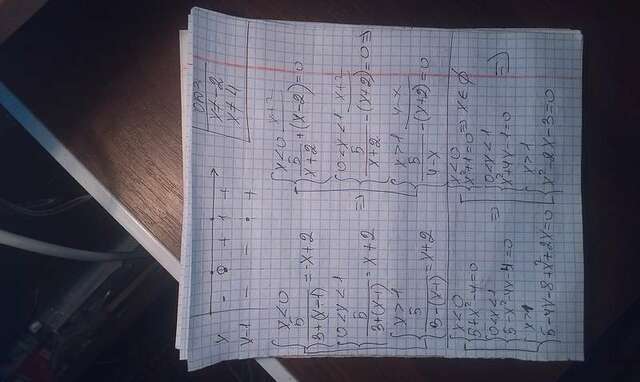 ОДЗ:
x≠-2
x≠4
x - 0 + 1 +
x-1 - - +
x<0
5/(3+(x-1)) = -x+2
0<x<1
5/(3+(x-1)) = x+2 =>
x>1
5/(3-(x-1)) = x+2
x<0
5/(x+2) + (x-2) = 0
0<x<1
5/(x+2) - (x+2) = 0 =>
x>1
5/(4-x) - (x+2) = 0
x<0
5+x²-4=0
0<x<1
5-x²-4x-4=0 =>
x>1
5-4x-8+x²+2x=0
x<0
x²+1=0 => x∈∅
0<x<1
x²+4x-1=0 =>
x>1
x²-2x-3=0